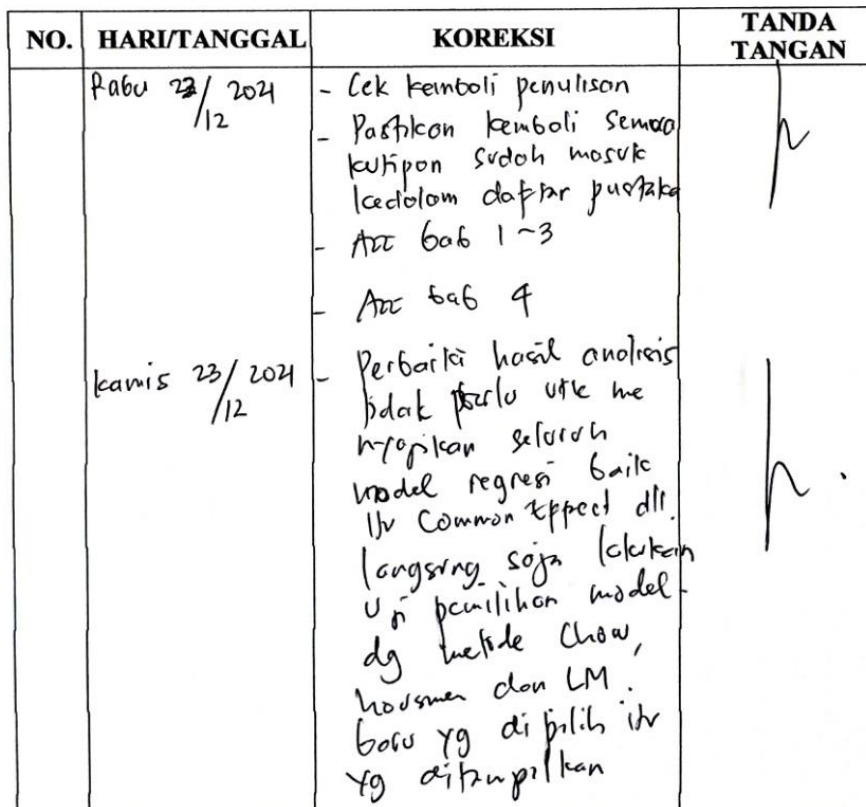 NO. HARI/TANGGAL KOREKSI TANDA TANGAN
Rabu 22/12 2021 - Cek kembali penulisan
- Pastikan kembali semua
kutipan sudah masuk
kedalam daftar pustaka
- Acc bab 1~3
- Acc bab 4
kamis 23/12 2021 - Perbaiki hasil analisis
tidak perlu utk me
nyajikan seluruh
model regresi baik
itu Common Effect dll.
langsung saja lakukan
uji pemilihan model
dg metode Chow,
hausman dan LM.
baru yg dipilih itu
yg ditampilkan